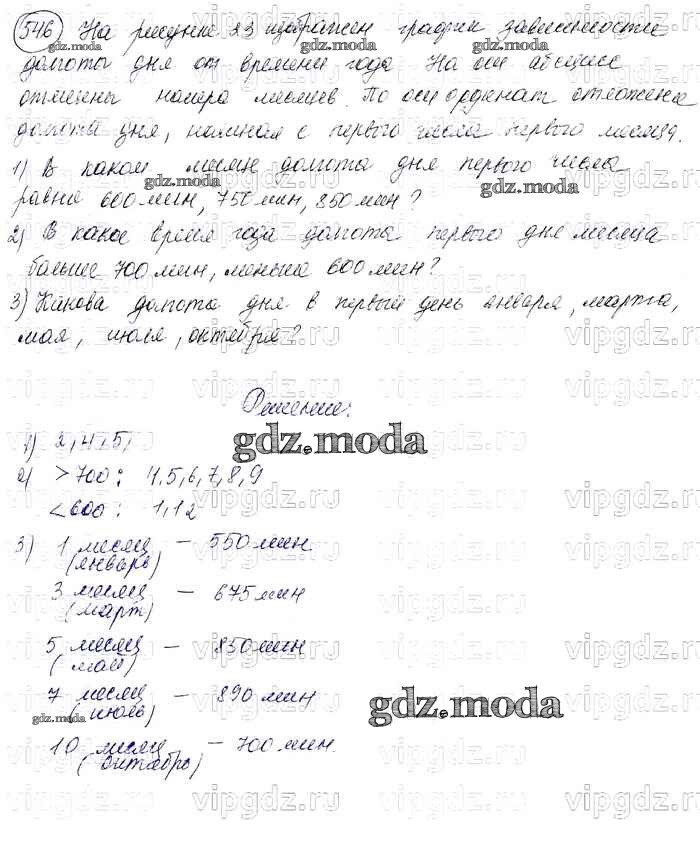 546) На рисунке 23 изображен график зависимости
долготы дня от времени года На оси абсцисс
отмечены номера месяцев. По оси ординат отложена
долгота дня, начиная с первого числа первого месяца.
1) В каком месяце долгота дня первого числа
равна 600 мин, 750 мин, 850 мин?
2) В какое время года долгота первого дня месяца
больше 700 мин, меньше 600 мин?
3) Какова долгота дня в первый день января, марта,
мая, июля, октября?
Решение:
1) 2, 4, 5,
2) >700: 4,5,6,7,8,9
<600: 1,12
3) 1 месяц — 550 мин.
(январь)
3 месяц — 675 мин
(март)
5 месяц — 850 мин
(май)
7 месяц — 890 мин
(июль)
10 месяц — 700 мин.
(октябрь)
gdz.moda
vipgdz.ru